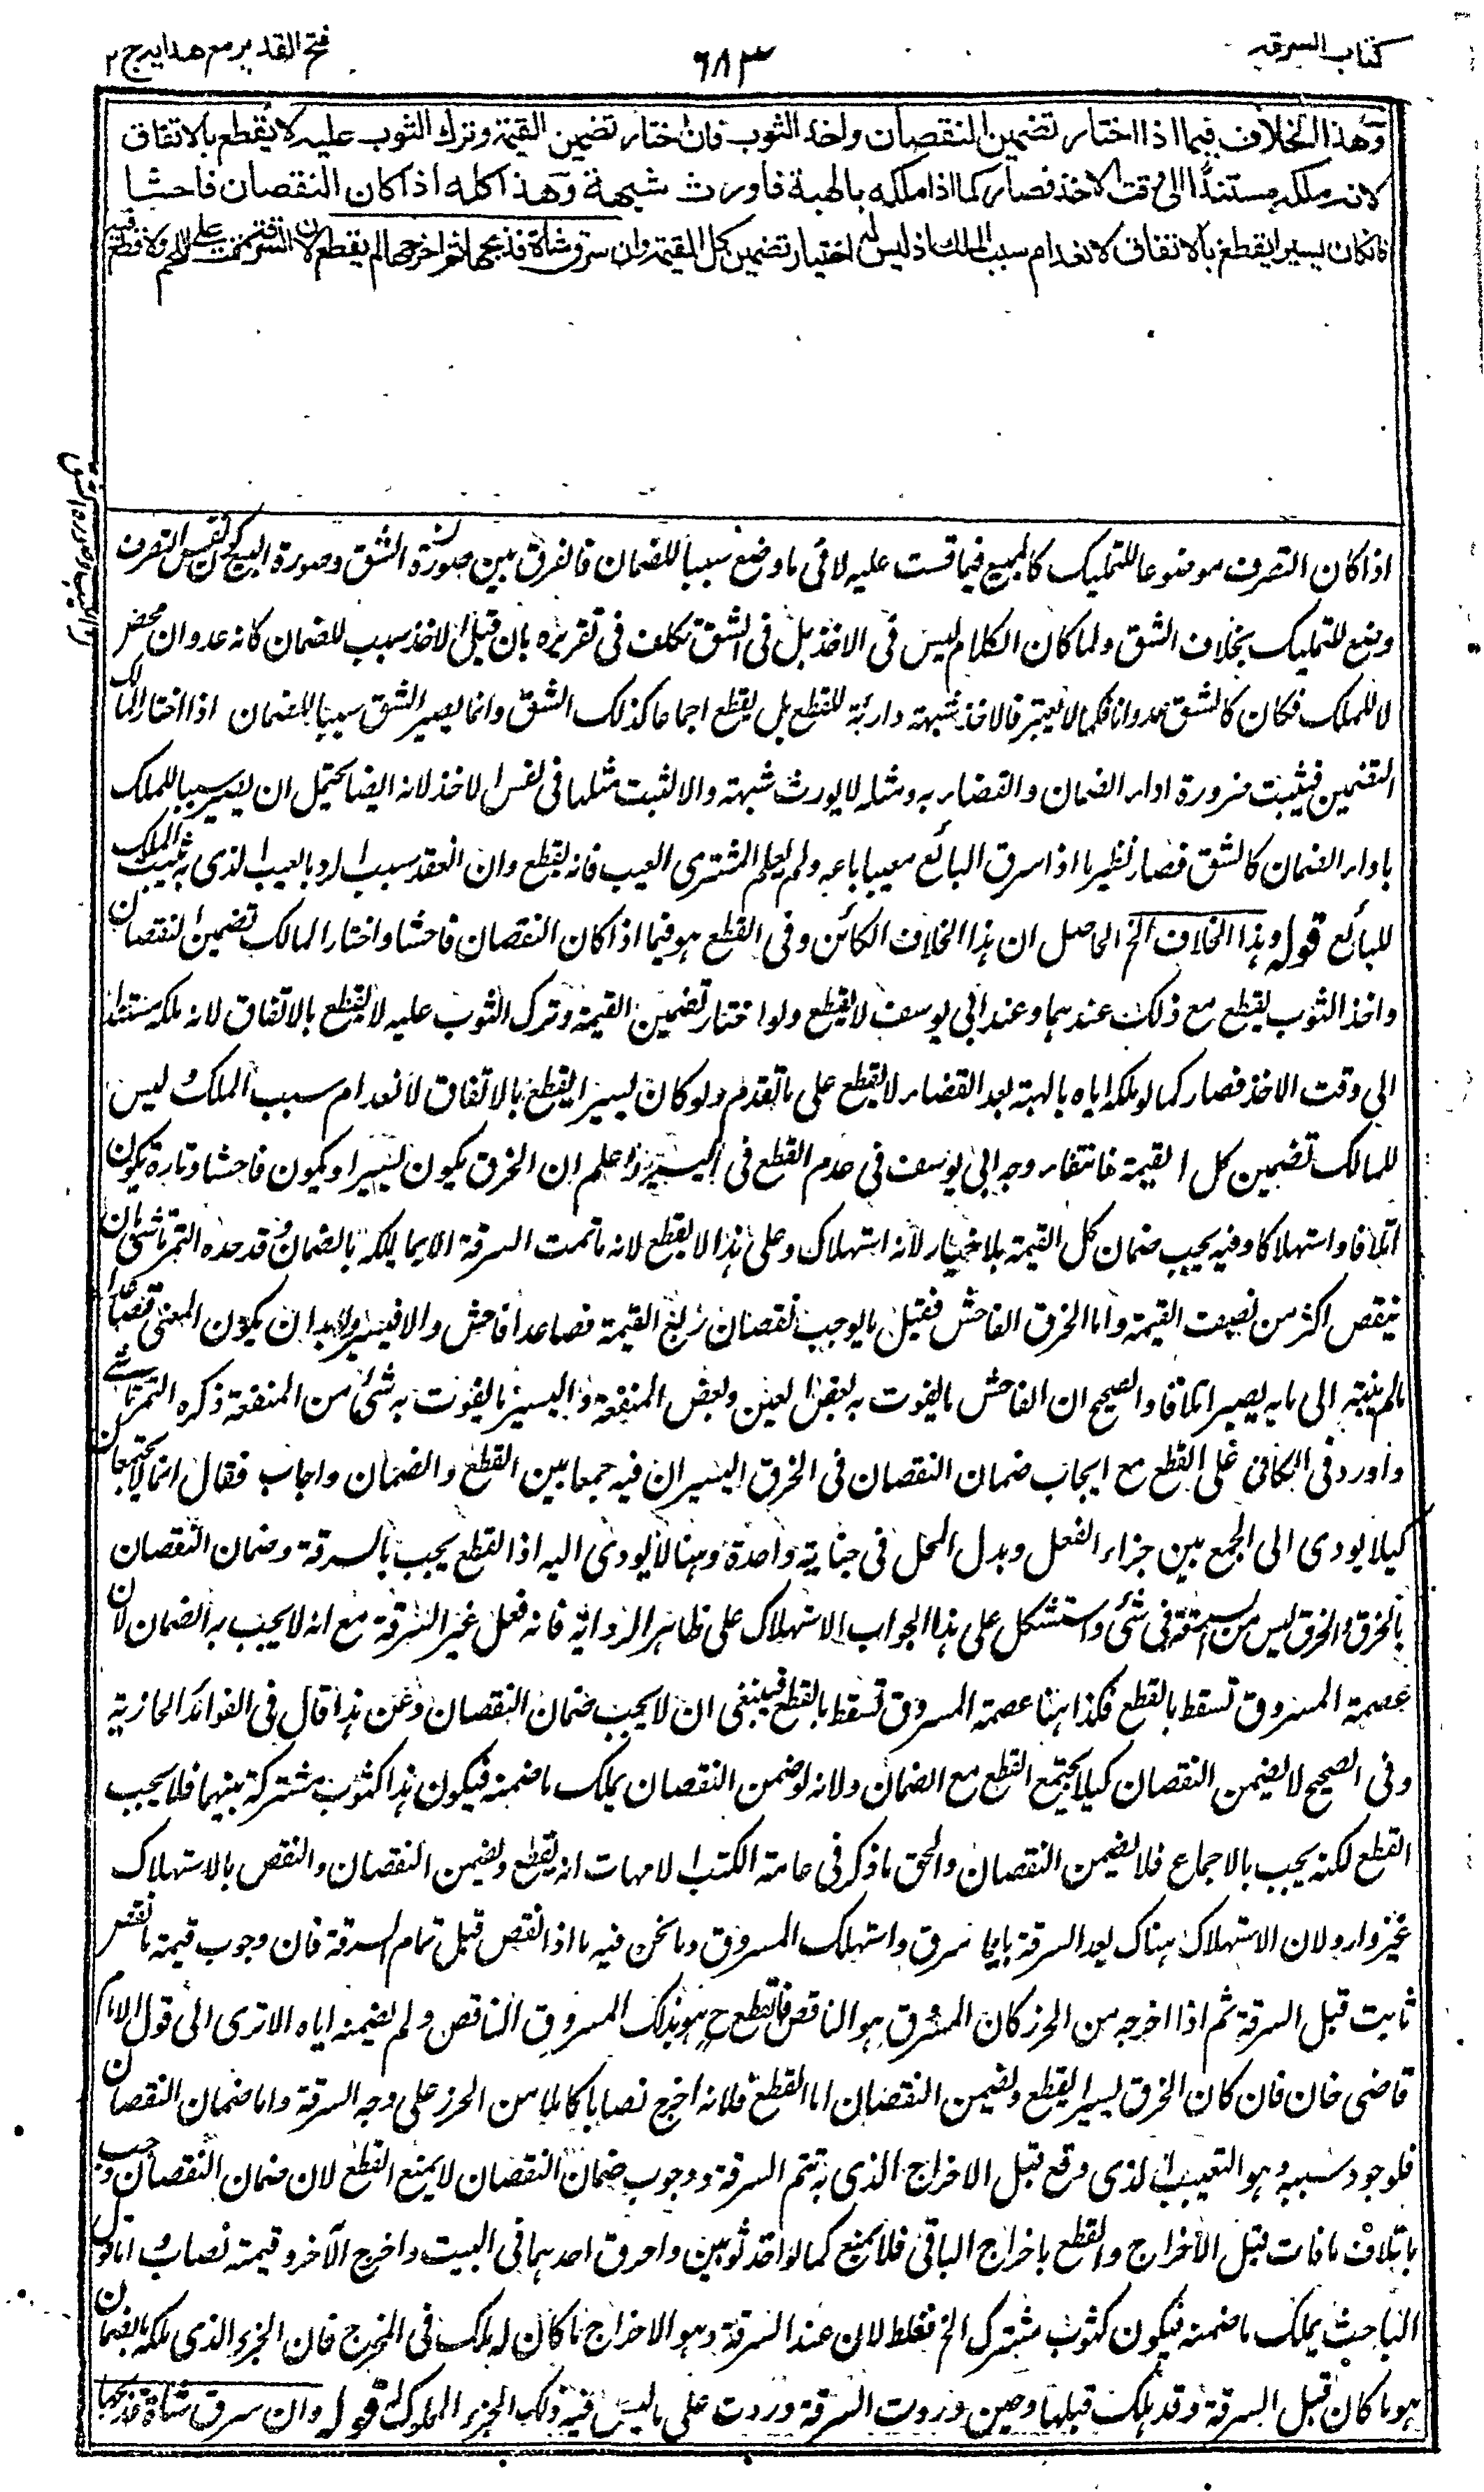 كتاب السرقة
٦٨٣
فتح القدير مع هدايه ج ٢
وهذا الخلاف فيما اذا اختار تضمين النقصان واخذ الثوب فان اختار تضمين القيمة وترك الثوب عليه لا يقطع بالاتفاق
لانه ملكه مستندا الى وقت الاخذ فصار كما اذا ملكه بالهبة فاورث شبهة وهذا كله اذا كان النقصان فاحشا
فان كان يسيرا يقطع بالاتفاق لانعدام سبب الملك اذ ليس له اختيار تضمين كل القيمة وان سرق شاة فذبحها ثم اخرجها لم يقطع لان السرقة تمت على اللحم ولا قطع فيه
اذا كان التصرف موضوعا للتمليك كالبيع فيما قست عليه لا فى ما وضع سببا للضمان فالفرق بين صورة الشق وصورة البيع كون نفس التصرف
وضع للتمليك بخلاف الشق ولما كان الكلام ليس فى الاخذ بل فى الشق تكلف فى تقريره بان قيل الاخذ سبب للضمان كانه عدوان محض
لا للملك فكان كالشق عدوانا فكما لا يعتبر فالاخذ شبهة دارئة للقطع بل يقطع اجماعا كذلك الشق وانما يصير الشق سببا للضمان اذا اختار المالك
التضمين فيثبت ضرورة اداء الضمان والقضاء به ومثله لا يورث شبهة والا لثبت مثلها فى نفس الاخذ لانه ايضا يحتمل ان يصير سببا للملك
باداء الضمان كالشق فصار نظير ما اذا سرق البائع معيبا باعه ولم يعلم المشترى العيب فانه يقطع وان انعقد سبب الرد بالعيب الذى به يثبت الملك
للبائع قوله وهذا الخلاف الخ الحاصل ان هذا الخلاف الكائن وفى القطع هو فيما اذا كان النقصان فاحشا واختار المالك تضمين النقصان
واخذ الثوب يقطع مع ذلك عندهما وعند ابى يوسف لا يقطع ولو اختار تضمين القيمة وترك الثوب عليه لا يقطع بالاتفاق لانه ملكه مستندا
الى وقت الاخذ فصار كما لو ملكه اياه بالهبة بعد القضاء لا يقطع على ما تقدم ولو كان يسيرا يقطع بالاتفاق لانعدام سبب الملك و ليس
للمالك تضمين كل القيمة فانتفاء وجه ابى يوسف فى عدم القطع فى اليسير واعلم ان الخرق يكون يسيرا ويكون فاحشا وتارة يكون
اتلافا واستهلاكا وفيه يجب ضمان كل القيمة بلا خيار لانه استهلاك وعلى هذا لا يقطع لانه ما تمت السرقة الا بما يملكه بالضمان وقد حده التمرتاشى بان
ينقص اكثر من نصف القيمة واما الخرق الفاحش فقيل ما يوجب نقصان ربع القيمة فصاعدا فاحش والا فيسير ولا بد ان يكون المعنى فصاعدا
ما لم ينته الى ما به يصير اتلافا والصحيح ان الفاحش ما يفوت به بعض العين وبعض المنفعة واليسير ما يفوت به شئ من المنفعة ذكره التمرتاشى
واورد فى الكافى على القطع مع ايجاب ضمان النقصان فى الخرق اليسير ان فيه جمعا بين القطع والضمان واجاب فقال انما لا يجتمعان
كيلا يودى الى الجمع بين جزاء الفعل وبدل المحل فى جناية واحدة وهنا لا يودى اليه اذ القطع يجب بالسرقة وضمان النقصان
بالخرق والخرق ليس من السرقة فى شئ واستشكل على هذا الجواب الاستهلاك على ظاهر الرواية فانه فعل غير السرقة مع انه لا يجب به الضمان لان
عصمة المسروق تسقط بالقطع فكذا هنا عصمة المسروق تسقط بالقطع فينبغى ان لا يجب ضمان النقصان وعن هذا قال فى الفوائد الخبازية
وفى الصحيح لا يضمن النقصان كيلا يجتمع القطع مع الضمان ولانه لو ضمن النقصان يملك ما ضمنه فيكون هذا كثوب مشتركة بينهما فلا يجب
القطع لكنه يجب بالاجماع فلا يضمن النقصان والحق ما ذكر فى عامة الكتب الامهات انه يقطع ويضمن النقصان والنقص بالاستهلاك
غير وارد ولان الاستهلاك هناك بعد السرقة بان سرق واستهلك المسروق وما نحن فيه ما اذا نقص قبل تمام السرقة فان وجوب قيمة ما نقص
ثابت قبل السرقة ثم اذا اخرجه من الحرز كان المسروق هو الناقص فالقطع ح هو بذلك المسروق الناقص ولم يضمنه اياه الا ترى الى قول الامام
قاضى خان فان كان الخرق يسيرا يقطع ويضمن النقصان اما القطع فلانه اخرج نصابا كاملا من الحرز على وجه السرقة واما ضمان النقصان
فلوجود سببه وهو التعييب الذى وقع قبل الاخراج الذى به تتم السرقة ووجوب ضمان النقصان لا يمنع القطع لان ضمان النقصان وجب
باتلاف ما فات قبل الاخراج والقطع باخراج الباقى فلا يمنع كما لو اخذ ثوبين واحرق احدهما فى البيت واخرج الآخر وقيمته نصاب واما قول
الباحث يملك ما ضمنه فيكون كثوب مشترك الخ فغلط لان عند السرقة وهو الاخراج ما كان له ملك فى المخرج فان الجزء الذى ملكه بالضمان
هو ما كان قبل السرقة وقد هلك قبلها وحين وردت السرقة وردت على ما ليس فيه ذلك الجزء المملوك له قوله وان سرق شاة فذبحها